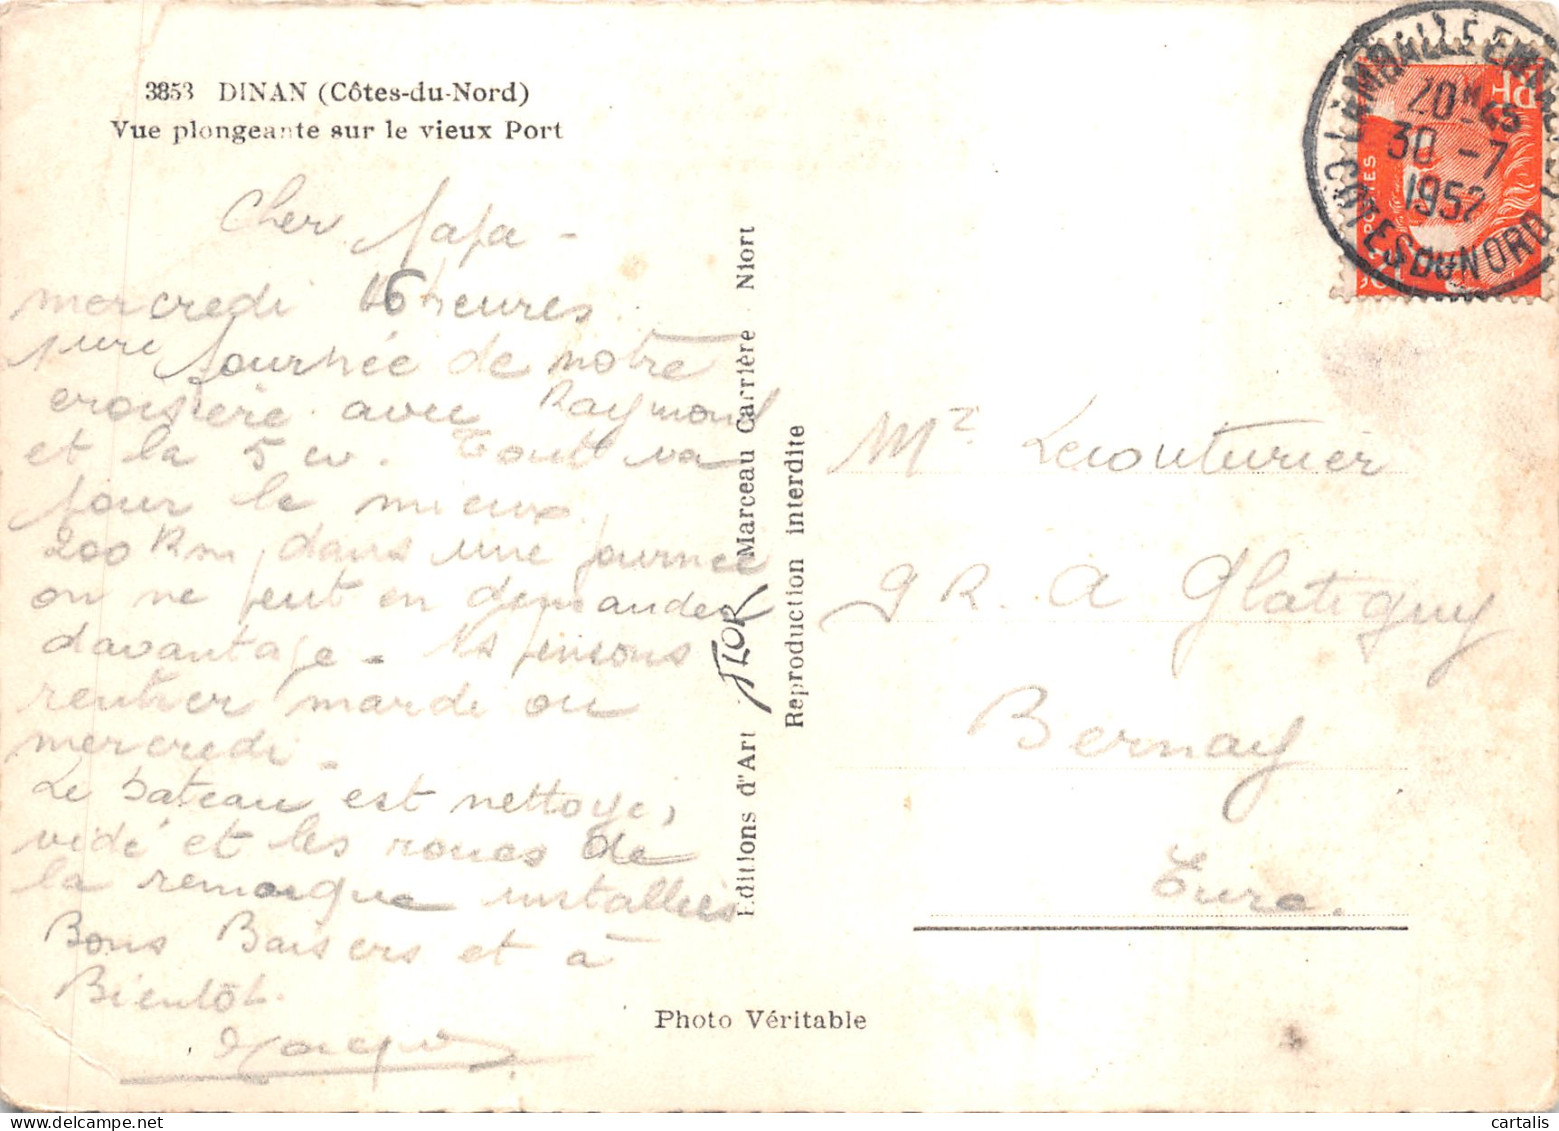 3853 DINAN (Côtes-du-Nord)
Vue plongeante sur le vieux Port
Cher Papa -
mercredi 16 heures
journée de notre
croisière avec Raymond
et la 5 cv. Tout va
pour le mieux.
200 Km, dans une journée
on ne peut en demander
davantage - Ns pensons
rentrer mardi ou
mercredi -
Le bateau est nettoyé,
vidé et les roues de
la remorque installées
Bons Baisers et à
Bientôt.
Jacques
Editions d'Art JLOR Marceau Carrière Niort
Reproduction interdite
Photo Véritable
Mr Lecouturier
9 R. A Glatigny
Bernay
Eure.
LAMBALLE
COTES DU NORD
20H 15
30 -7
1952
RF
POSTES
cartalis